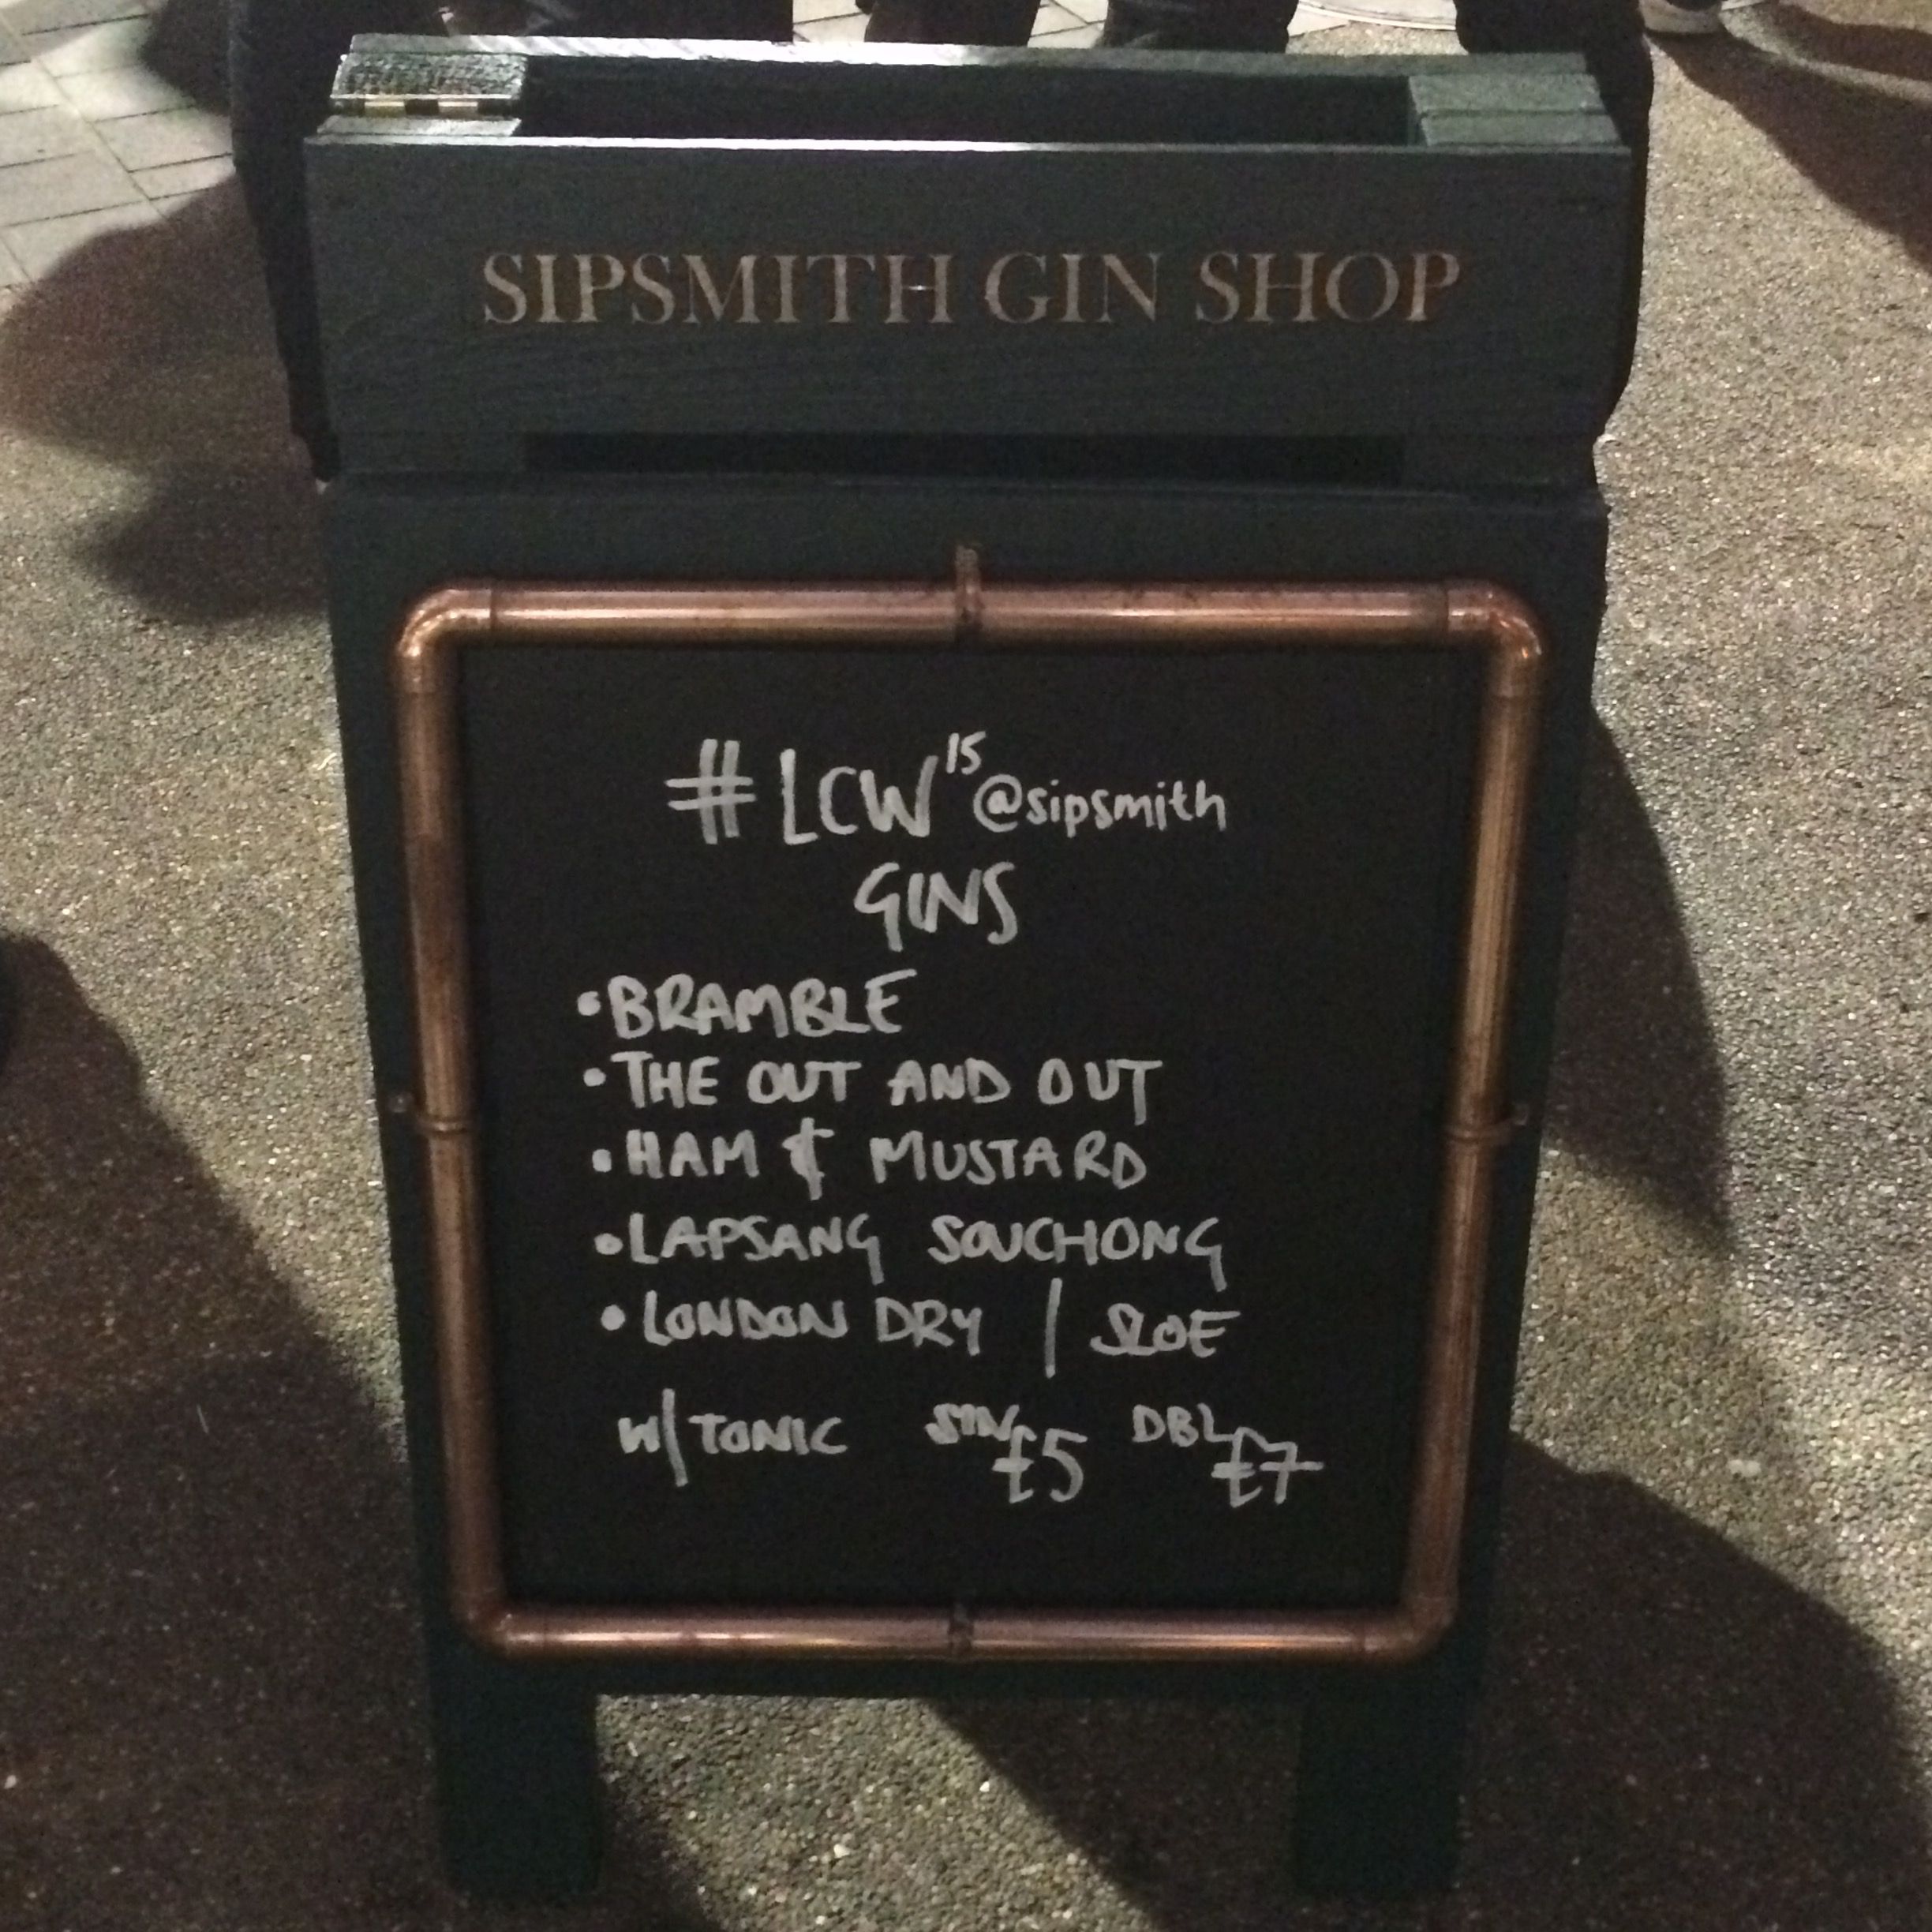 SIPSMITH GIN SHOP
#LCW15 @sipsmith
GINS
• BRAMBLE
• THE OUT AND OUT
• HAM & MUSTARD
• LAPSANG SOUCHONG
• LONDON DRY / SLOE
W/ TONIC SIN £5 DBL £7